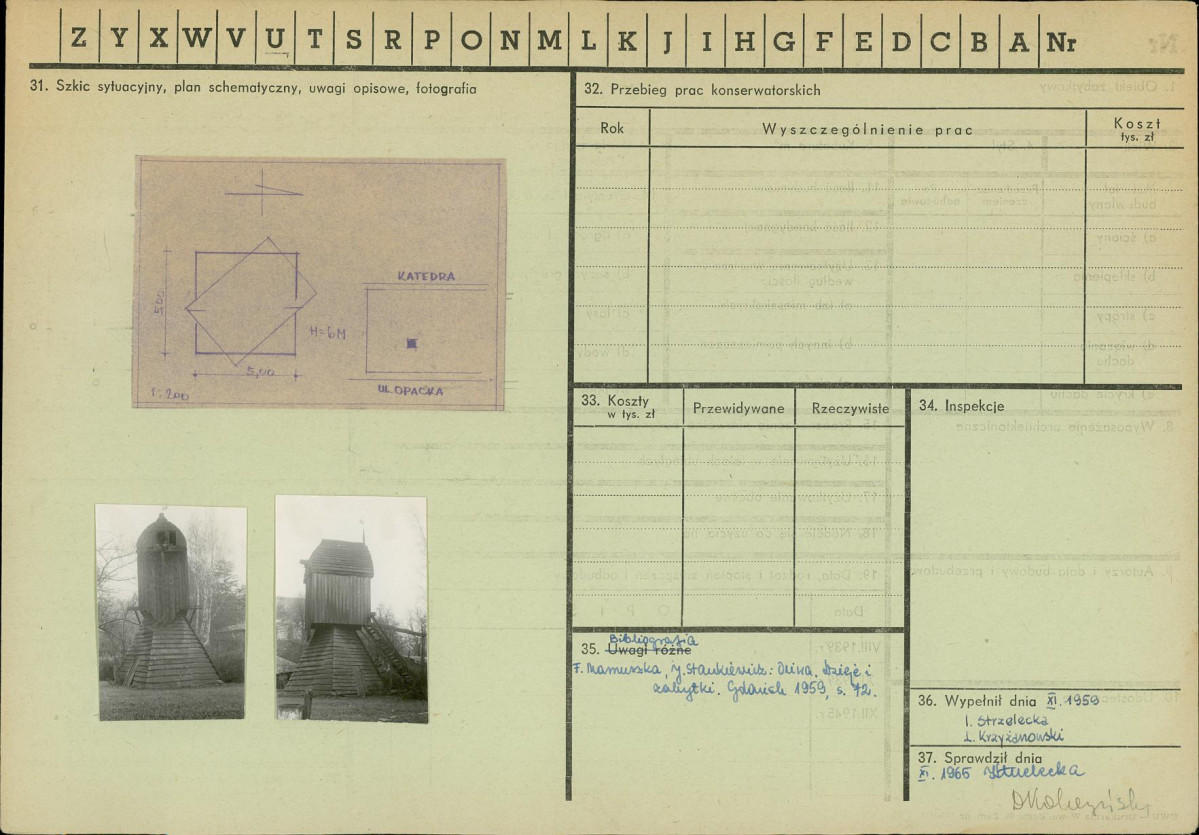 Z Y X W V U T S R P O N M L K J I H G F E D C B A Nr
31. Szkic sytuacyjny, plan schematyczny, uwagi opisowe, fotografia
500
5,00
H=6M
1:200
KATEDRA
UL OPACKA
32. Przebieg prac konserwatorskich
Rok
Wyszczególnienie prac
Koszt
tys. zł
33. Koszty
w tys. zł
Przewidywane
Rzeczywiste
34. Inspekcje
Bibliografia
35. Uwagi różne
F. Mamuszka, J. Stankiewicz: Oliwa. Dzieje i
zabytki. Gdańsk 1959, s. 72.
36. Wypełnił dnia XI. 1959
I. Strzelecka
L. Krzyżanowski
37. Sprawdził dnia
XI. 1965 IStrzelecka